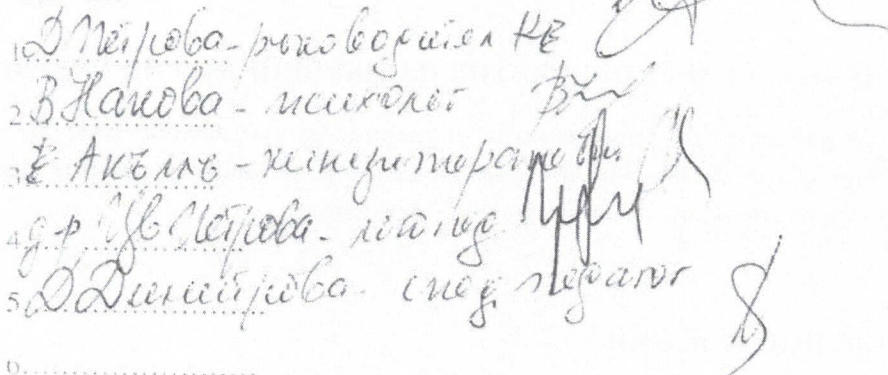 1. Д Петрова - ръководител КЕ
2. В Нанова - психолог
3. Е Акъллъ - кинезитерапевт
4. д-р Цв Петрова - логопед
5. Д Димитрова - спец. педагог
6.